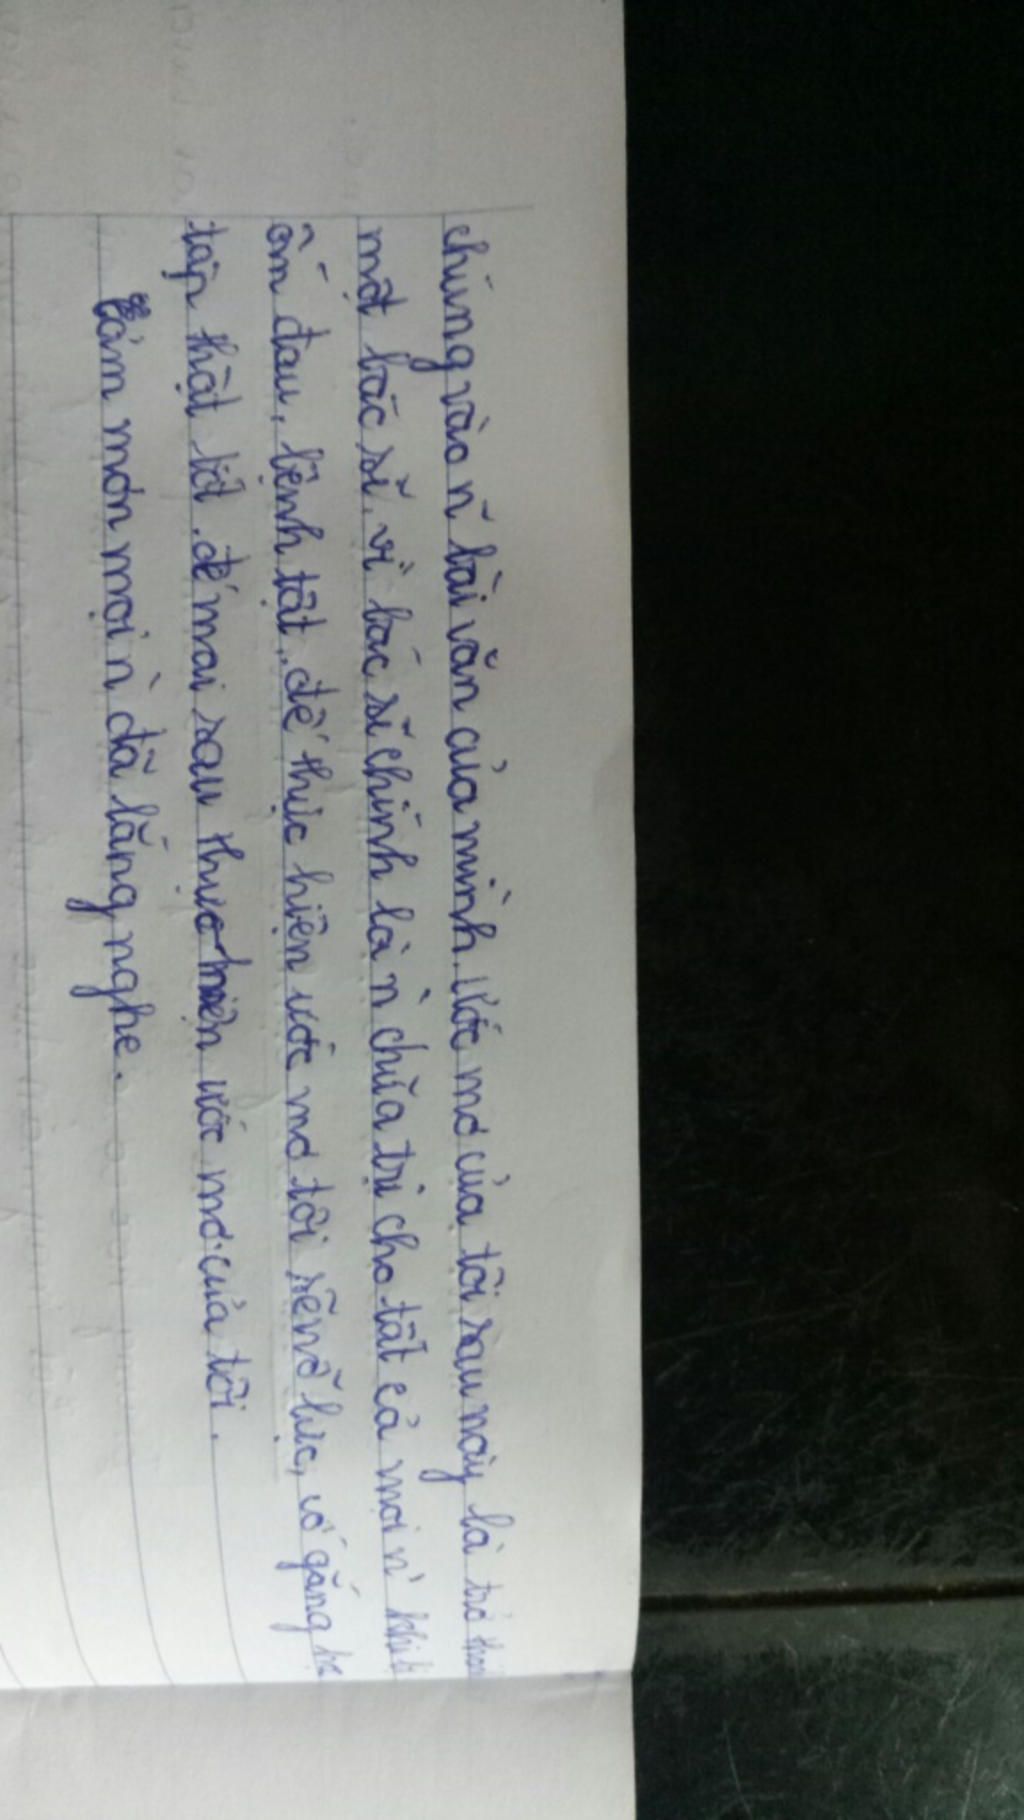 chúng vào n~ bài văn của mình. Ước mơ của tôi sau này là trở thành
một bác sĩ. vì bác sĩ chính là n` chữa trị cho tất cả mọi n` khi bị
ốm đau, bệnh tật,. để thực hiện ước mơ tôi sẽ nỗ lực, cố gắng học
tập thật tốt. để mai sau thực hiện ước mơ. của tôi.
cảm mơn mọi n` đã lắng nghe.